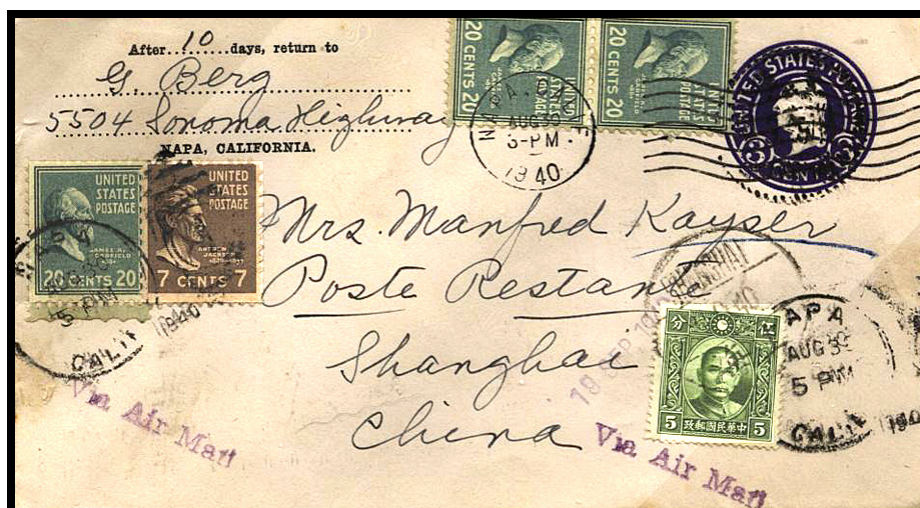 After 10 days, return to
G. Berg
5504 Sonoma Highway
NAPA, CALIFORNIA.
20 CENTS 20
UNITED STATES POSTAGE
20 CENTS 20
UNITED STATES POSTAGE
NAPA
AUG
3-PM
1940
UNITED STATES
UNITED
STATES
POSTAGE
JAMES A.
GARFIELD
20 CENTS 20
UNITED
STATES
POSTAGE
ANDREW
JACKSON
7 CENTS 7
5 PM
CALIF
1940
Mrs. Manfred Kayser
Poste Restante
Shanghai
China
SHANGHAI
分 伍
5 中華民國郵政 5
NAPA
AUG
5 PM
CALIF
Via Air Mail
Via Air Mail